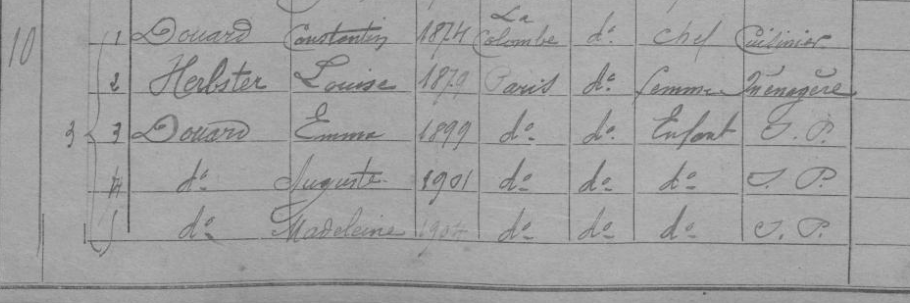 10 1 Douard Constantin 1874 La Colombe do chef Cuisinier
2 Herbster Louise 1879 Paris do femme Ménagère
3 3 Douard Emma 1899 do do Enfant S. P.
4 do Auguste 1901 do do do S. P.
5 do Madeleine 1904 do do do S. P.